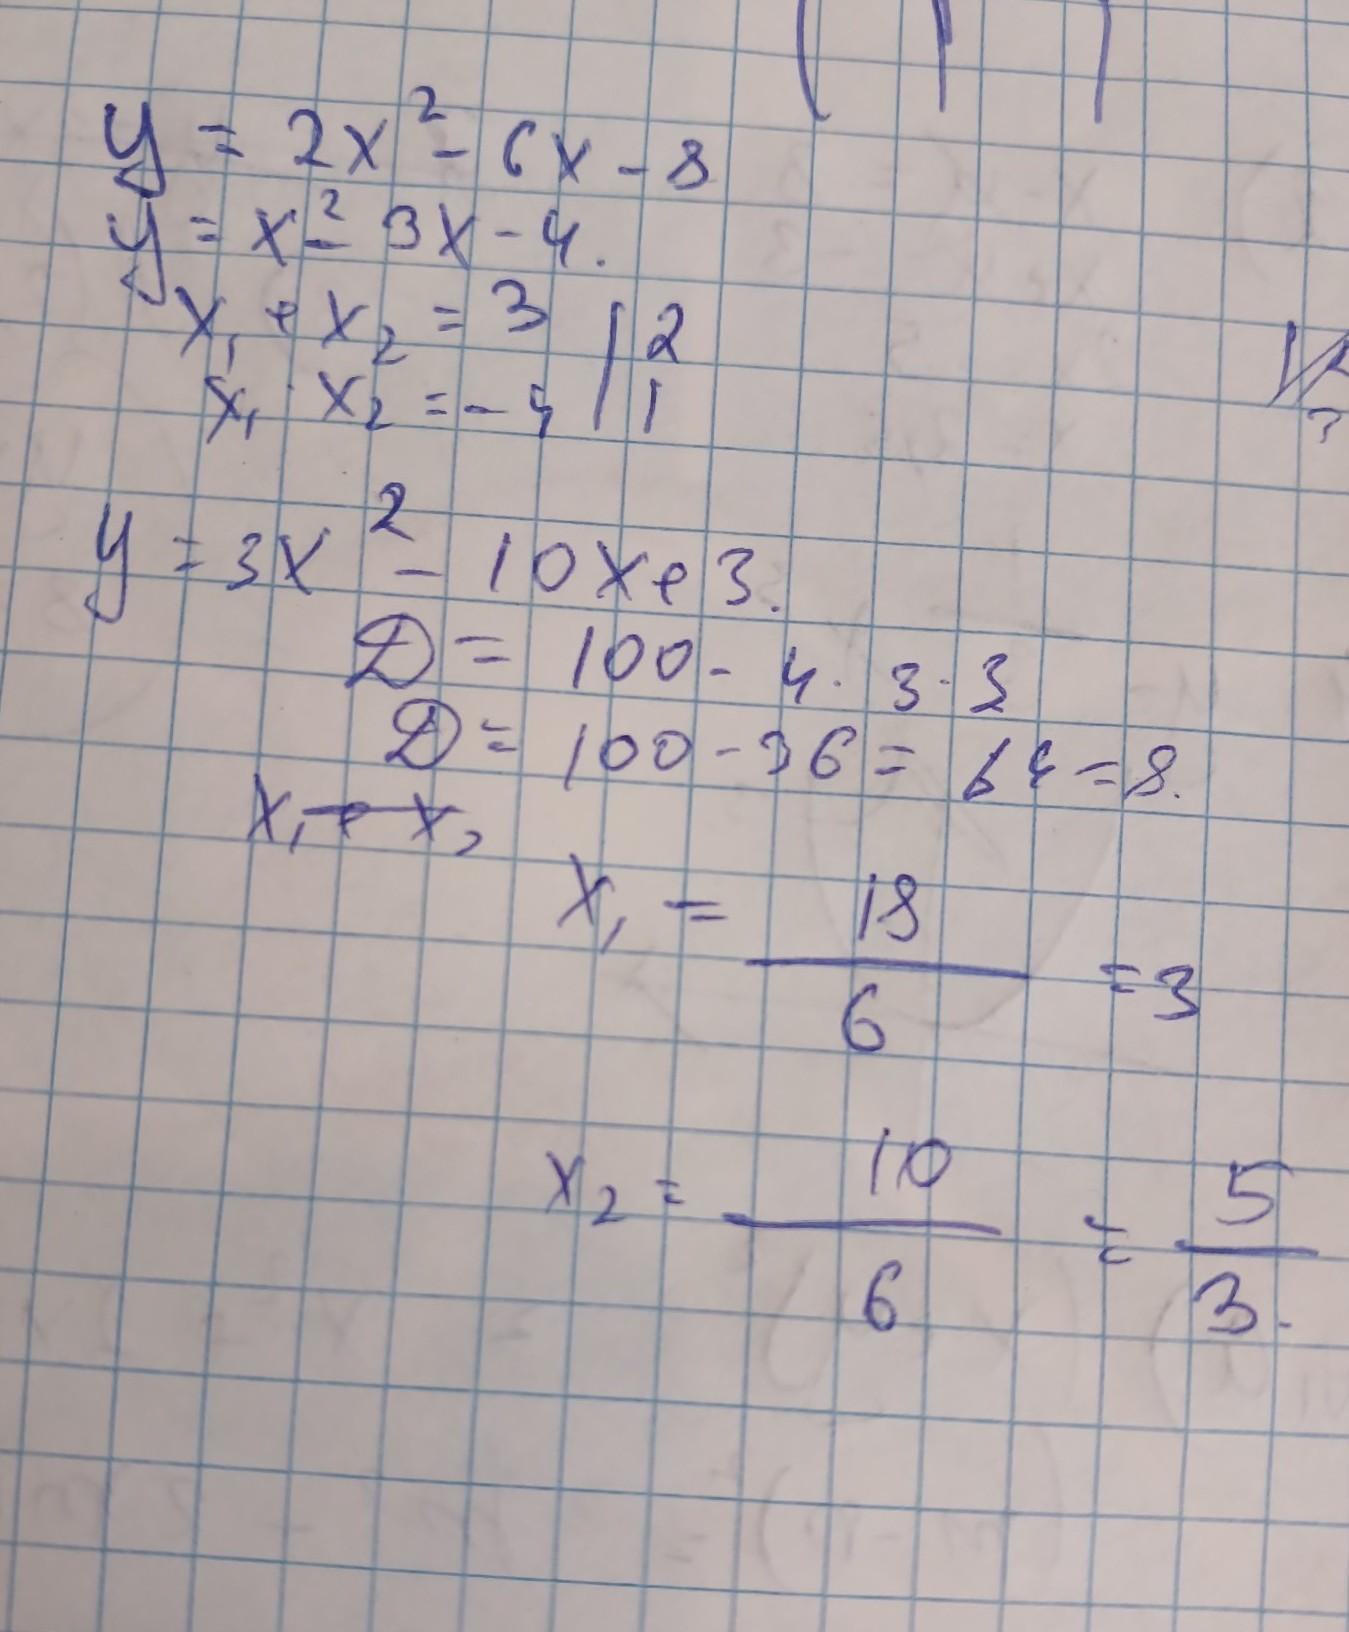 y = 2x² - 6x - 8
y = x² - 3x - 4.
x₁ + x₂ = 3 | 2
x₁ · x₂ = -4 | 1
y = 3x² - 10x + 3.
D = 100 - 4 · 3 · 3
D = 100 - 36 = 64 = 8.
x₁ + x₂
x₁ = 18/6 = 3
x₂ = 10/6 = 5/3.